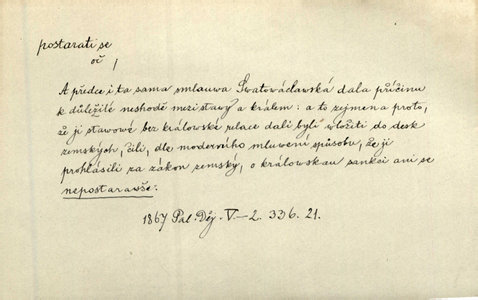 postarati se
oč |
A předce i ta sama smlauwa Swatowáclawská dala příčinu
k důležité neshodě mezi stawy a králem: a to zejmena proto,
že ji stawowé bez králowské relace dali byli wložiti do desk
zemských, čili, dle moderního mluwení spůsobu, že ji
prohlásili za zákon zemský, o králowskau sankci ani se
nepostarawše.
1867 Pal. Děj. V.-2. 336. 21.